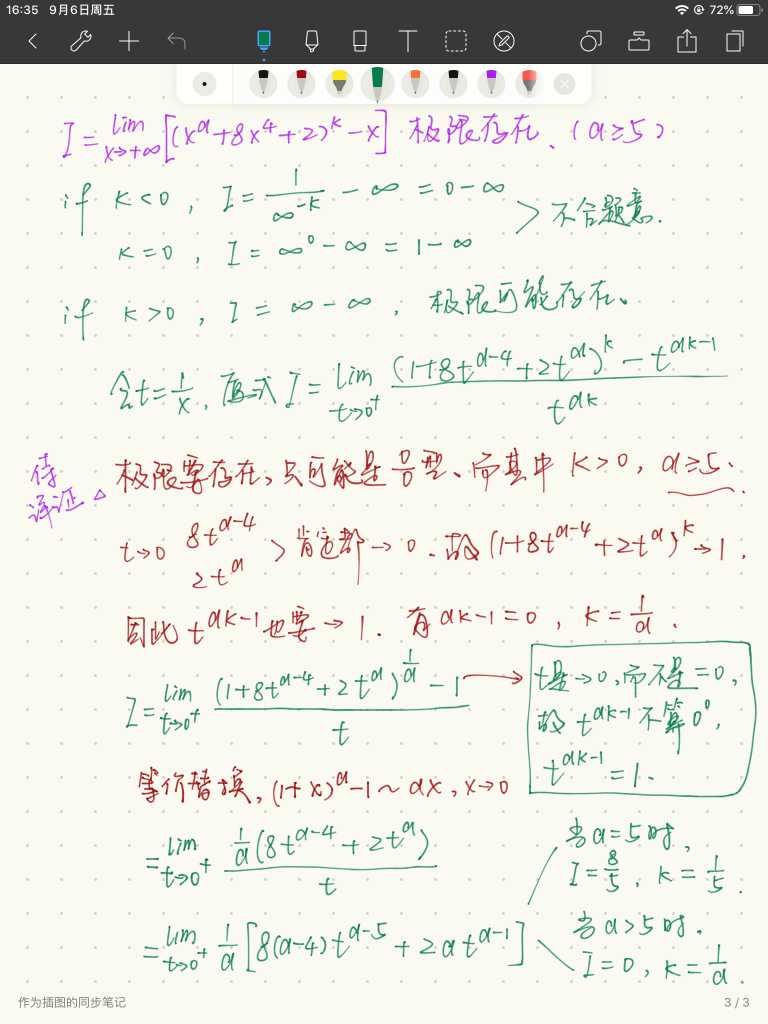 16:35 9月6日周五 72%
I = lim x→+∞ [(x^a+8x^4+2)^k - x] 极限存在. (a≥5)
if k<0, I = 1/∞^-k - ∞ = 0-∞
> 不合题意.
k=0, I = ∞^0 - ∞ = 1-∞
if k>0, I = ∞-∞, 极限可能存在.
令t=1/x, 原式 I = lim t→0^+ ((1+8t^(a-4)+2t^a)^k - t^(ak-1))/t^(ak)
待详证 △
极限要存在, 只可能是 0/0 型、而其中 k>0, a≥5.
t→0 8t^(a-4) 2t^a > 肯定都→0. 故 (1+8t^(a-4)+2t^a)^k→1.
因此 t^(ak-1) 也要→1. 有 ak-1=0, k=1/a.
I = lim t→0^+ ((1+8t^(a-4)+2t^a)^(1/a) - 1)/t
t是→0,而不是=0,
故 t^(ak-1) 不算 0^0,
t^(ak-1)=1.
等价替换, (1+x)^a-1~ax, x→0
= lim t→0^+ (1/a(8t^(a-4)+2t^a))/t
当a=5时,
I=8/5, k=1/5.
= lim t→0^+ 1/a[8(a-4)t^(a-5)+2at^(a-1)]
当a>5时.
I=0, k=1/a.
作为插图的同步笔记 3 / 3